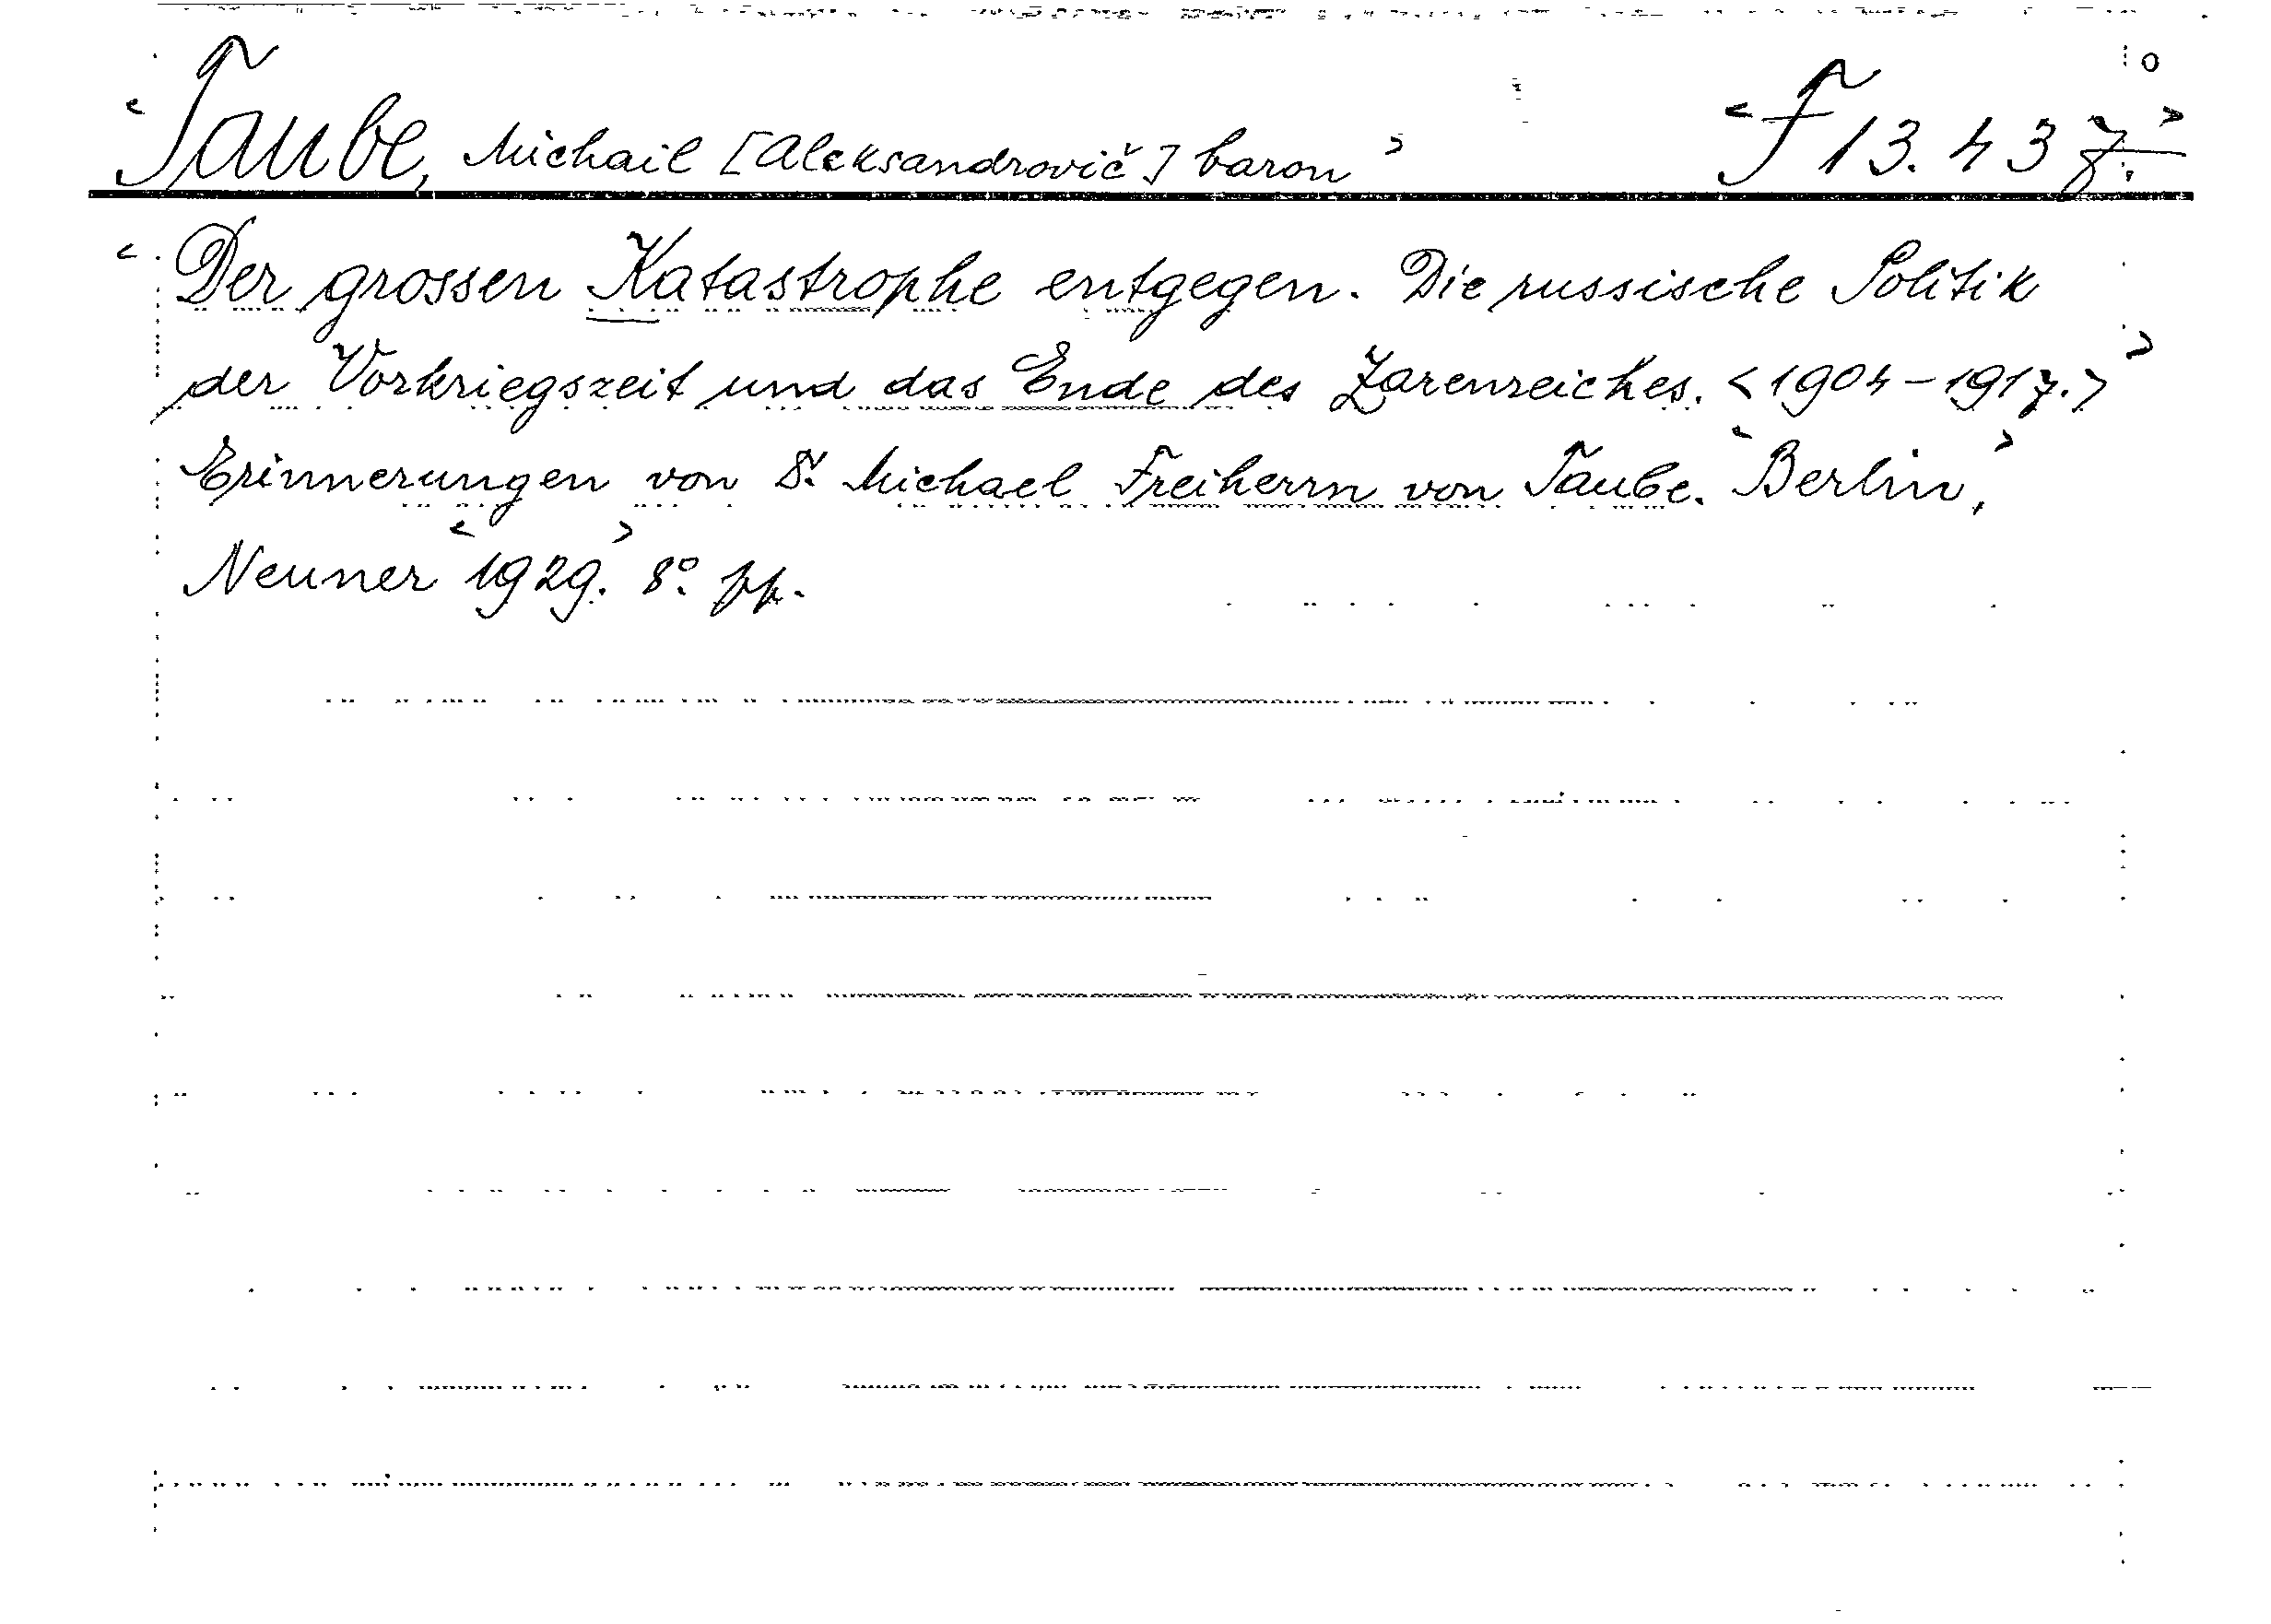 <Taube, Michail [Aleksandrovič] baron> <F 13.437.>
<Der grossen Katastrophe entgegen. Die russische Politik
der Vorkriegszeit und das Ende des Zarenreiches. <1904-1917.>>
Erinnerungen von Dr. Michael Freiherrn von Taube. <Berlin,>
Neuner <1929.> 8° pp.